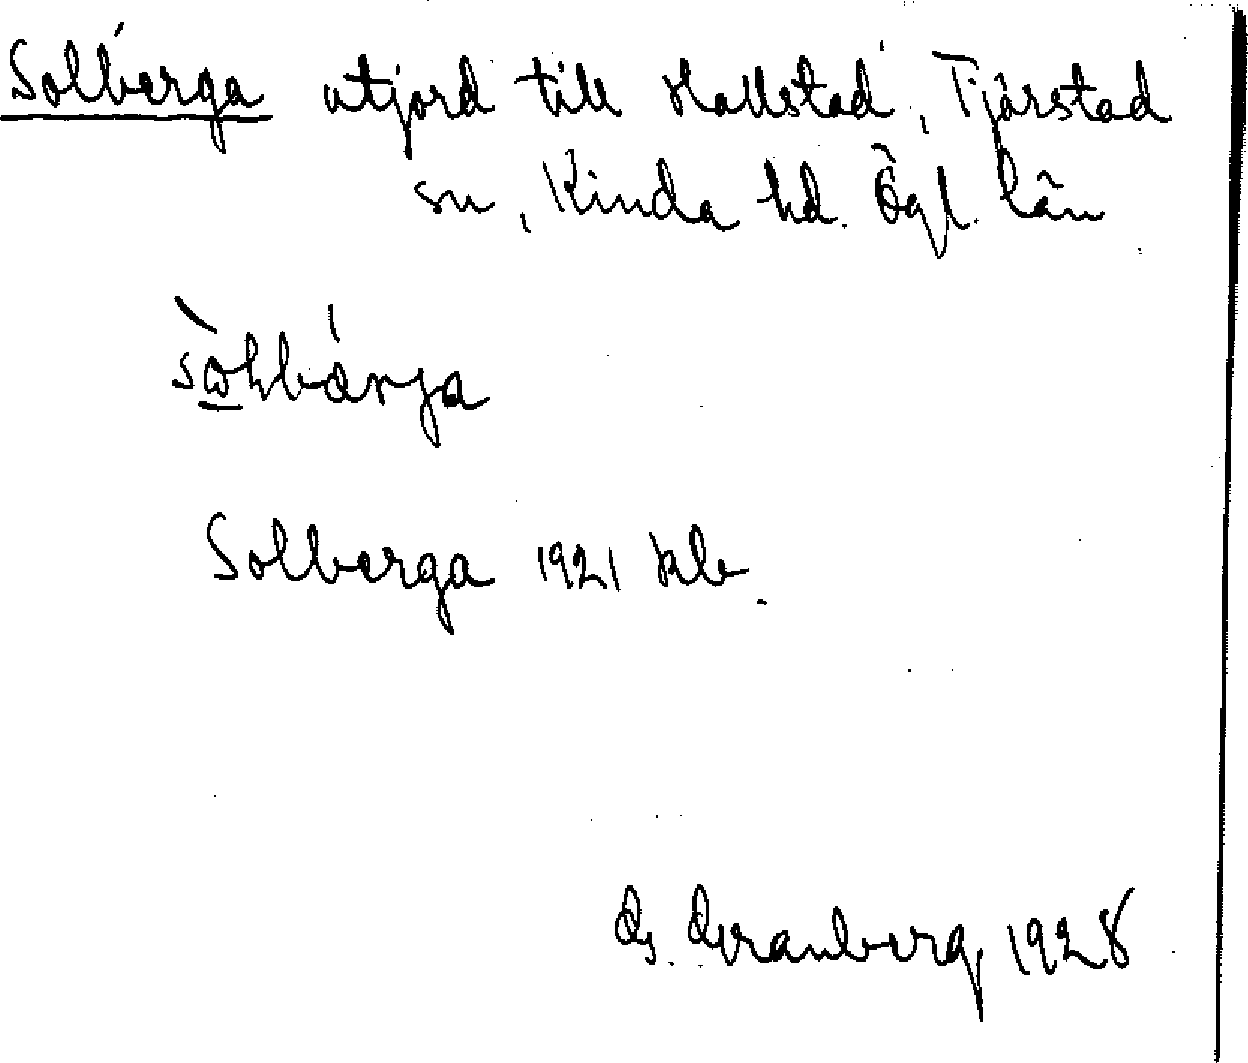 Solberga utjord till Hallstad, Tjärstad
sn, Kinda hd. Ögl. län
Solberga 1921 klb.
G. Granberg 1928